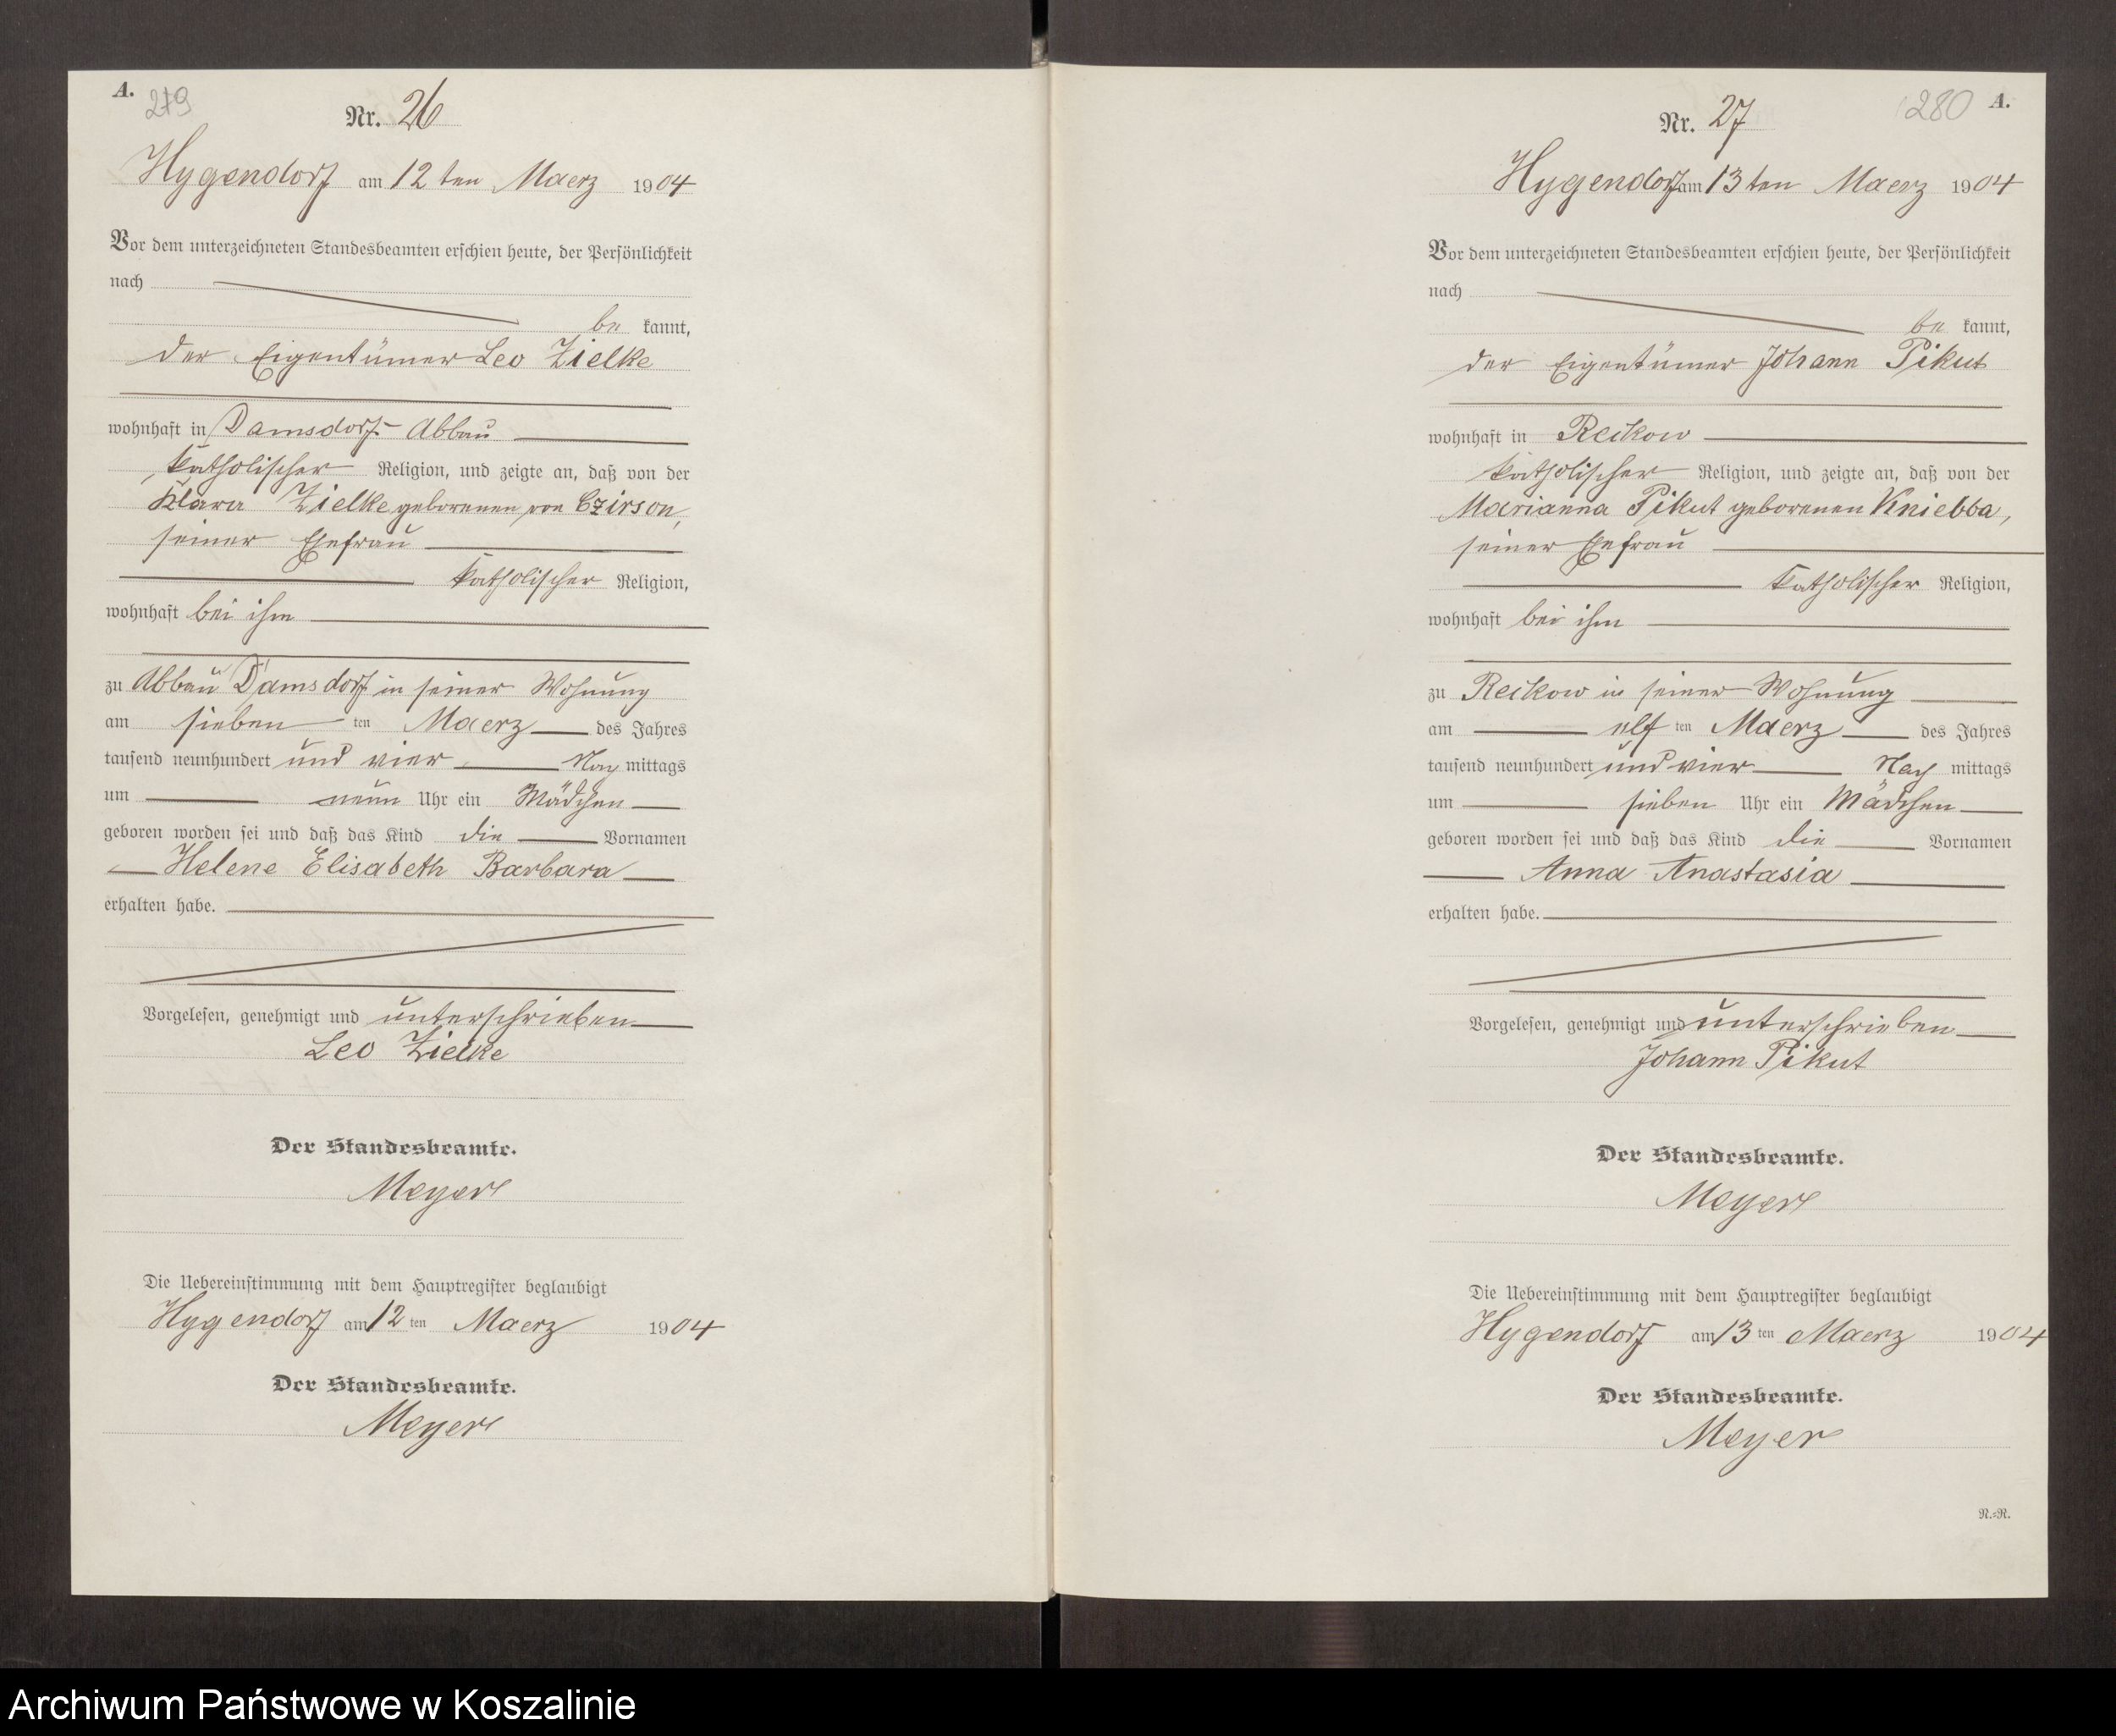 A.
279
Nr. 26
Hygendorf am 12 ten Maerz 1904
Vor dem unterzeichneten Standesbeamten erschien heute, der Persönlichkeit
nach
be kannt,
der Eigentümer Leo Zielke
wohnhaft in Damsdorf Abbau
katholischer Religion, und zeigte an, daß von der
Klara Zielke geborenen von Czirson,
seiner Ehefrau
katholischer Religion,
wohnhaft bei ihm
zu Abbau Damsdorf in seiner Wohnung
am sieben ten Maerz des Jahres
tausend neunhundert und vier Nach mittags
um neun Uhr ein Mädchen
geboren worden sei und daß das Kind die Vornamen
Helene Elisabeth Barbara
erhalten habe.
Vorgelesen, genehmigt und unterschrieben
Leo Zielke
Der Standesbeamte.
Meyer
Die Uebereinstimmung mit dem Hauptregister beglaubigt
Hygendorf am 12 ten Maerz 1904
Der Standesbeamte.
Meyer
280
A.
Nr. 27
Hygendorf am 13 ten Maerz 1904
Vor dem unterzeichneten Standesbeamten erschien heute, der Persönlichkeit
nach
be kannt,
der Eigentümer Johann Pikut
wohnhaft in Reckow
katholischer Religion, und zeigte an, daß von der
Marianna Pikut geborenen Kniebba,
seiner Ehefrau
katholischer Religion,
wohnhaft bei ihm
zu Reckow in seiner Wohnung
am elf ten Maerz des Jahres
tausend neunhundert und vier Nach mittags
um sieben Uhr ein Mädchen
geboren worden sei und daß das Kind die Vornamen
Anna Anastasia
erhalten habe.
Vorgelesen, genehmigt und unterschrieben
Johann Pikut
Der Standesbeamte.
Meyer
Die Uebereinstimmung mit dem Hauptregister beglaubigt
Hygendorf am 13 ten Maerz 1904
Der Standesbeamte.
Meyer
R.=R.
Archiwum Państwowe w Koszalinie